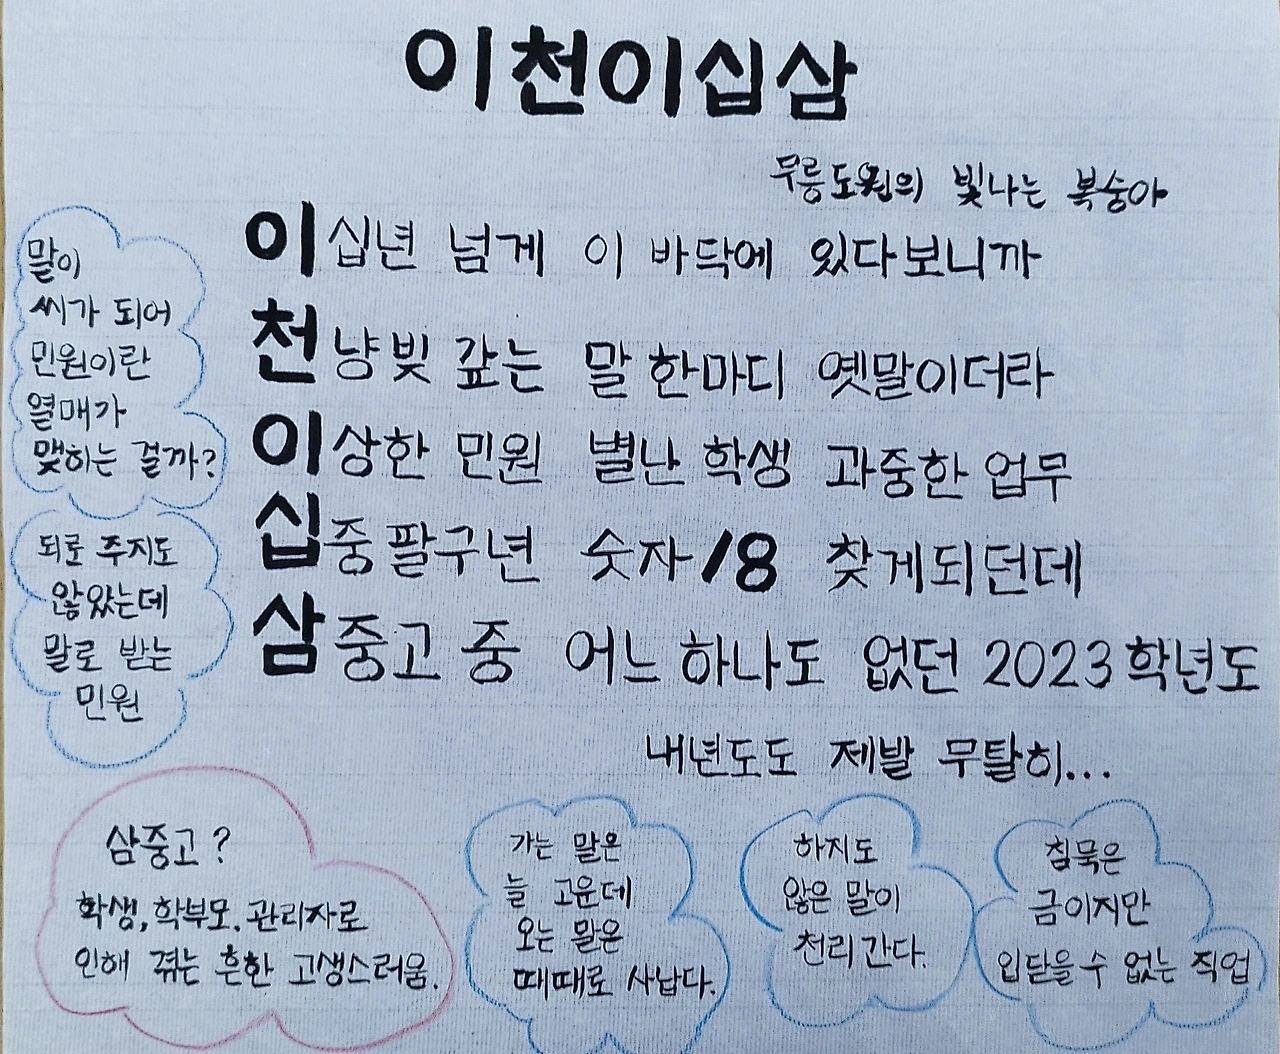 이천이십삼
무릉도원의 빛나는 복숭아
이십년 넘게 이 바닥에 있다보니까
천냥빚 갚는 말 한마디 옛말이더라
이상한 민원 별난 학생 과중한 업무
십중팔구년 숫자/8 찾게되던데
삼중고 중 어느 하나도 없던 2023학년도
내년도도 제발 무탈히...
말이
씨가 되어
민원이란
열매가
맺히는 걸까?
되로 주지도
않았는데
말로 받는
민원
삼중고?
학생, 학부모. 관리자로
인해 겪는 흔한 고생스러움.
가는 말은
늘 고운데
오는 말은
때때로 사납다.
하지도
않은 말이
천리 간다.
침묵은
금이지만
입닫을 수 없는 직업